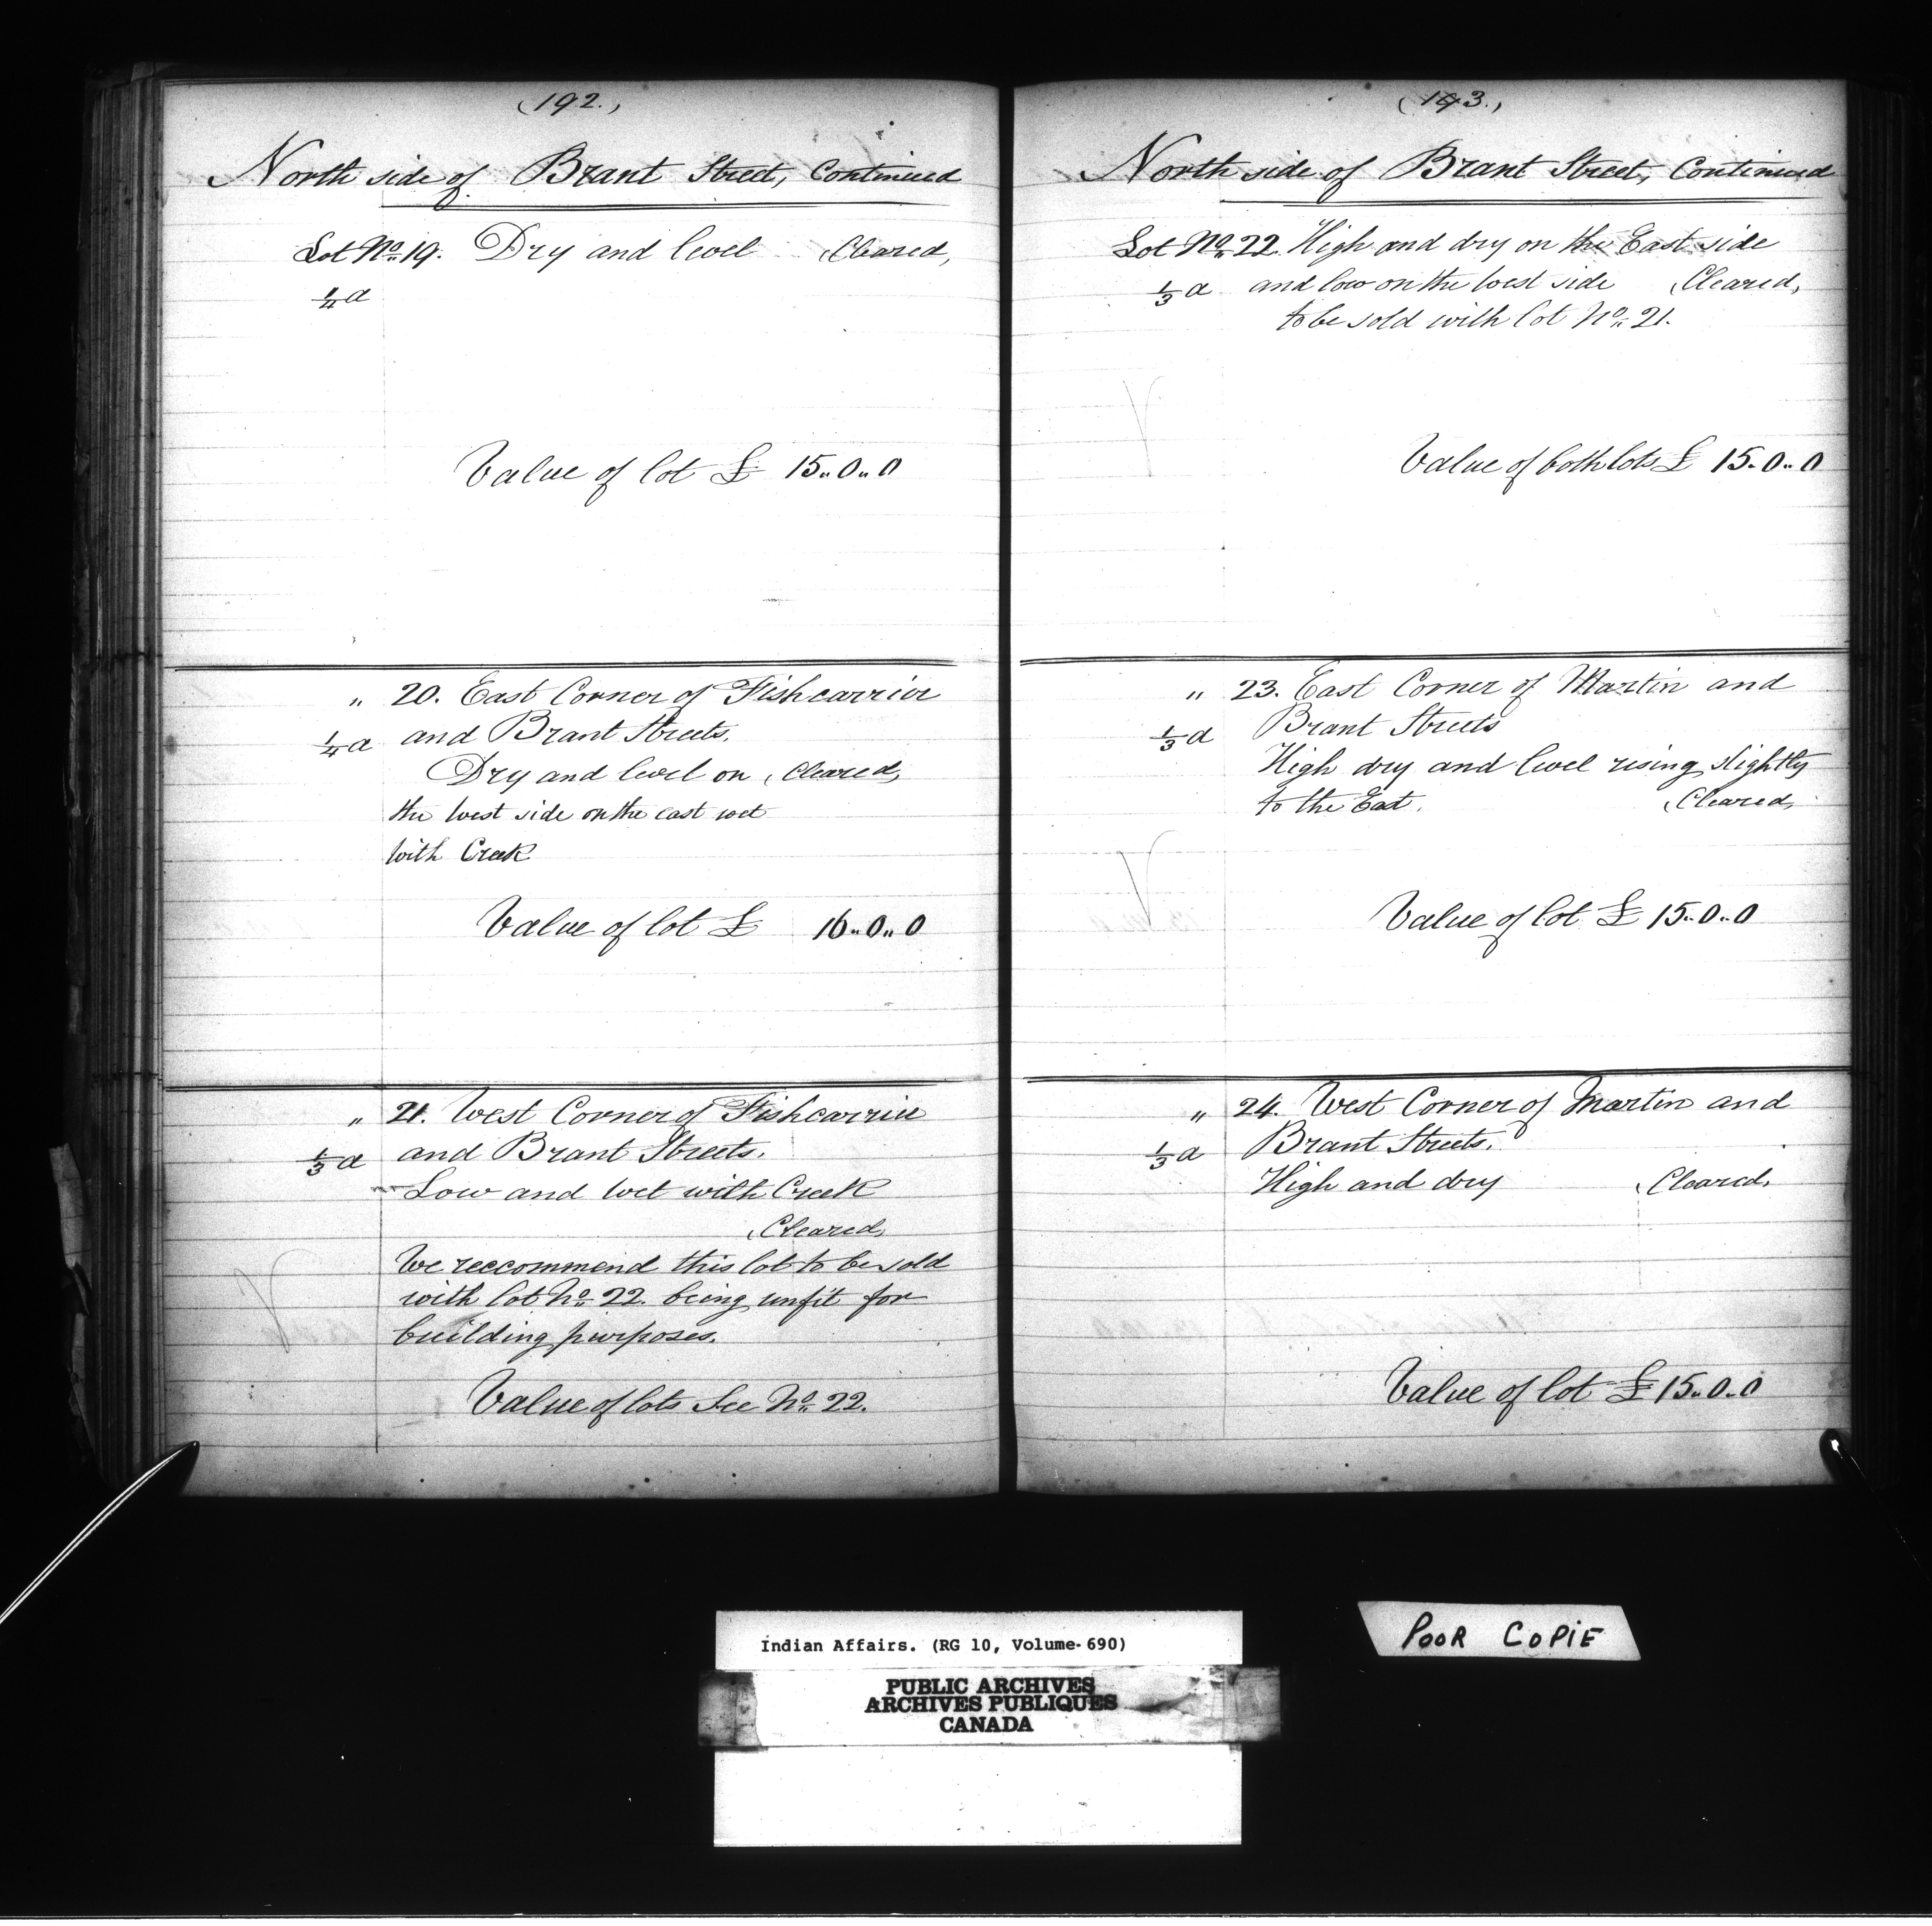 (192.)
North side of Brant Street, Continued
Lot No. 19. Dry and level (Cleared,
1/4 a
Value of lot £ 15..0..0
" 20. East Corner of Fishcarrier
1/4 a and Brant Streets.
Dry and level on (Cleared)
the west side on the east wet
with Creek
Value of lot £ 16..0..0
" 21. West Corner of Fishcarrier
1/3 a and Brant Streets.
Low and wet with Creek
(Cleared)
We reccommend this lot to be sold
with lot No. 22. being unfit for
building purposes.
Value of lots See No. 22.
(193.)
North side of Brant Street, Continued
Lot No. 22. High and dry on the East side
1/3 a and low on the west side (Cleared,
to be sold with lot No. 21.
Value of both lots £ 15..0..0
" 23. East Corner of Martin and
1/3 a Brant Streets
High dry and level rising slightly
to the East. (Cleared,
Value of lot £ 15..0..0
" 24. West Corner of Martin and
1/3 a Brant Streets.
High and dry (Cleared,
Value of lot £ 15..0..0
Indian Affairs. (RG 10, Volume 690)
PUBLIC ARCHIVES
ARCHIVES PUBLIQUES
CANADA
POOR COPIE